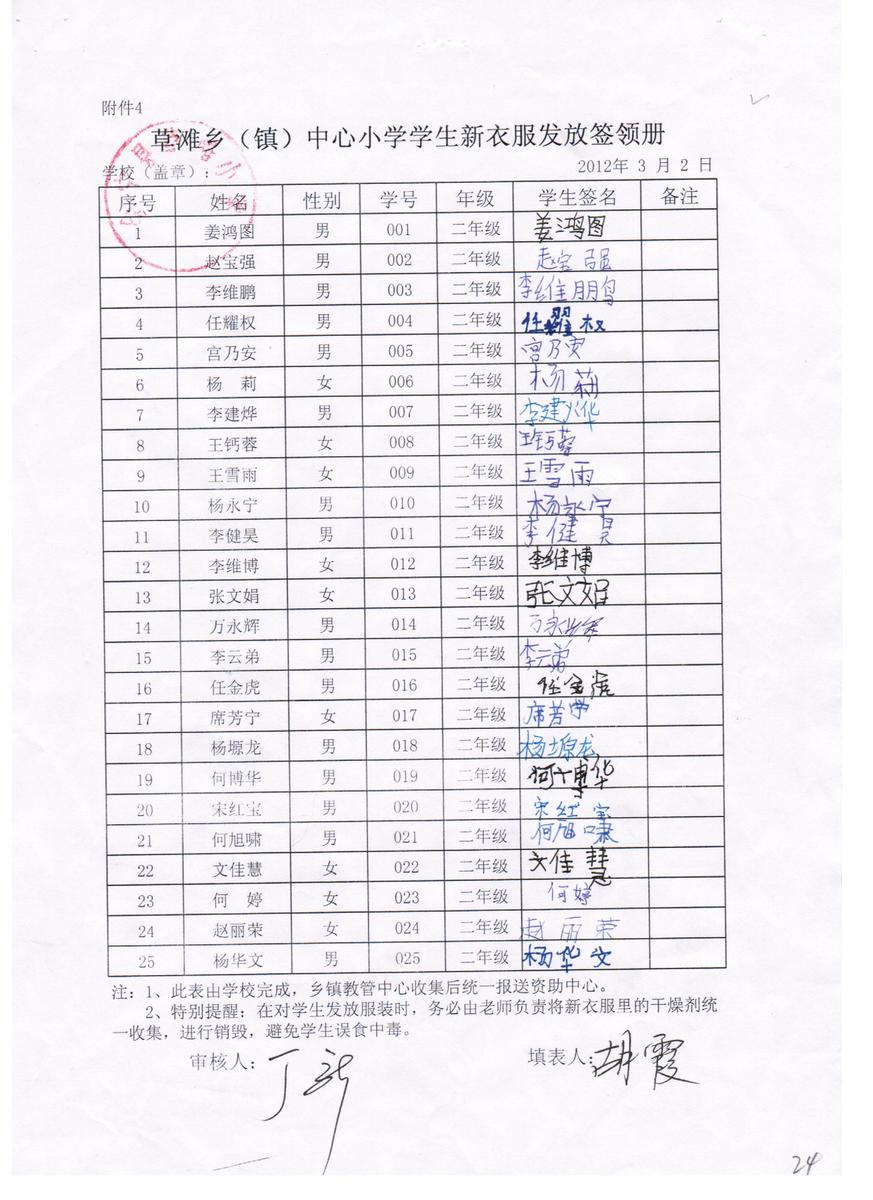 附件4
草滩乡（镇）中心小学学生新衣服发放签领册
学校（盖章）： 2012年 3 月 2 日
序号 姓名 性别 学号 年级 学生签名 备注
1 姜鸿图 男 001 二年级 姜鸿图
2 赵宝强 男 002 二年级 赵宝强
3 李维鹏 男 003 二年级 李维鹏
4 任耀权 男 004 二年级 任耀权
5 宫乃安 男 005 二年级 宫乃安
6 杨 莉 女 006 二年级 杨莉
7 李建烨 男 007 二年级 李建烨
8 王钙蓉 女 008 二年级 王钙蓉
9 王雪雨 女 009 二年级 王雪雨
10 杨永宁 男 010 二年级 杨永宁
11 李健昊 男 011 二年级 李健昊
12 李维博 女 012 二年级 李维博
13 张文娟 女 013 二年级 张文娟
14 万永辉 男 014 二年级 万永辉
15 李云弟 男 015 二年级 李云弟
16 任金虎 男 016 二年级 任金虎
17 席芳宁 女 017 二年级 席芳宁
18 杨塬龙 男 018 二年级 杨塬龙
19 何博华 男 019 二年级 何博华
20 宋红宝 男 020 二年级 宋红宝
21 何旭啸 男 021 二年级 何旭啸
22 文佳慧 女 022 二年级 文佳慧
23 何 婷 女 023 二年级 何婷
24 赵丽荣 女 024 二年级 赵丽荣
25 杨华文 男 025 二年级 杨华文
注：1、此表由学校完成，乡镇教管中心收集后统一报送资助中心。
2、特别提醒：在对学生发放服装时，务必由老师负责将新衣服里的干燥剂统
一收集，进行销毁，避免学生误食中毒。
审核人： 填表人：胡霞
24